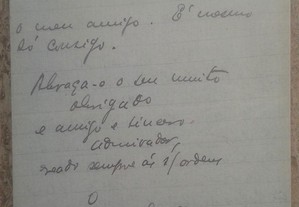 o meu amigo. É mesmo
só consigo.
Abraça-o o seu muito
obrigado
e amigo e sincero
admirador,
sempre às s/ordens
O